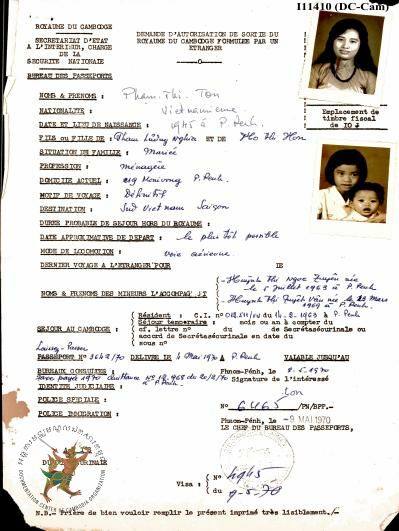 I11410 (DC-Cam)
ROYAUME DU CAMBODGE
SECRETARIAT D'ETAT
A L'INTERIEUR, CHARGE
DE LA
SECURITE NATIONALE
BUREAU DES PASSEPORTS
DEMANDE D'AUTORISATION DE SORTIE DU
ROYAUME DU CAMBODGE FORMULEE PAR UN
ETRANGER
Emplacement de
timbre fiscal
de 10
NOMS & PRENOMS : Pham Thi Ton
NATIONALITE : Vietnamienne
DATE ET LIEU DE NAISSANCE : 1945 à P. Penh.
FILS ou FILLE DE : Pham Lương Nghia ET DE Ho Thi Hon
SITUATION DE FAMILLE : Mariée
PROFESSION : Ménagère
DOMICILE ACTUEL : 219 Monivong P. Penh.
MOTIF DE VOYAGE : Définitif
DESTINATION : Sud Viet nam Saigon
DUREE PROBABLE DE SEJOUR HORS DU ROYAUME :
DATE APPROXIMATIVE DE DEPART : le plus tôt possible
MODE DE LOCOMOTION : voie aérienne.
DERNIER VOYAGE A L'ETRANGER POUR LE
Huỳnh Thi Ngoc Tuyền née
le 5 Juillet 1963 à P. Penh
NOMS & PRENOMS DES MINEURS L'ACCOMPAG
Huỳnh Thi Tuyết Vân née le 23 Mars
1969 à P. Penh.
Résident : C.I. n° du 14-8-1963 à P. Penh
Séjour temporaire : mois ou an à compter du
SEJOUR AU CAMBODGE : cf. lettre n° du de Secrétasécurinale ou
accord de Secrétasécurinale en date du
sous n°
Laissez-Passer
PASSEPORT N° 3642/70 DELIVRE LE 4 Mai 1970 à P. Penh VALABLE JUSQU'AU
BUREAUX CONSULTES : Phnom-Pénh, le 8-5-1970
Signature de l'intéressé
IDENTITE JUDICIAIRE :
Ton
POLICE SPECIALE :
N° 6465/PN/BPP.-
POLICE IMMIGRATION :
Phnom-Pénh, le -9 MAI 1970
LE CHEF DU BUREAU DES PASSEPORTS,
Visa : N° 4945
du 9-5-70
DOCUMENTATION CENTER OF CAMBODIA ORGANIZATION
N.B.- Prière de bien vouloir remplir le présent imprimé très lisiblement./-